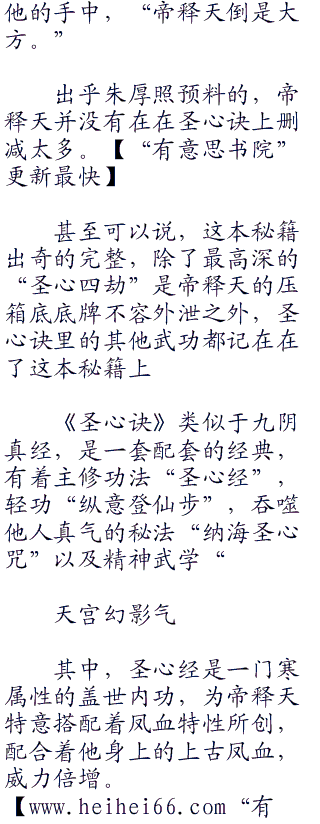 他的手中，“帝释天倒是大
方。”
出乎朱厚照预料的，帝
释天并没有在在圣心诀上删
减太多。【“有意思书院”
更新最快】
甚至可以说，这本秘籍
出奇的完整，除了最高深的
“圣心四劫”是帝释天的压
箱底底牌不容外泄之外，圣
心诀里的其他武功都记在在
了这本秘籍上
《圣心诀》类似于九阴
真经，是一套配套的经典，
有着主修功法“圣心经”，
轻功“纵意登仙步”，吞噬
他人真气的秘法“纳海圣心
咒”以及精神武学“
天宫幻影气
其中，圣心经是一门寒
属性的盖世内功，为帝释天
特意搭配着凤血特性所创，
配合着他身上的上古凤血，
威力倍增。
【www.heihei66.com“有